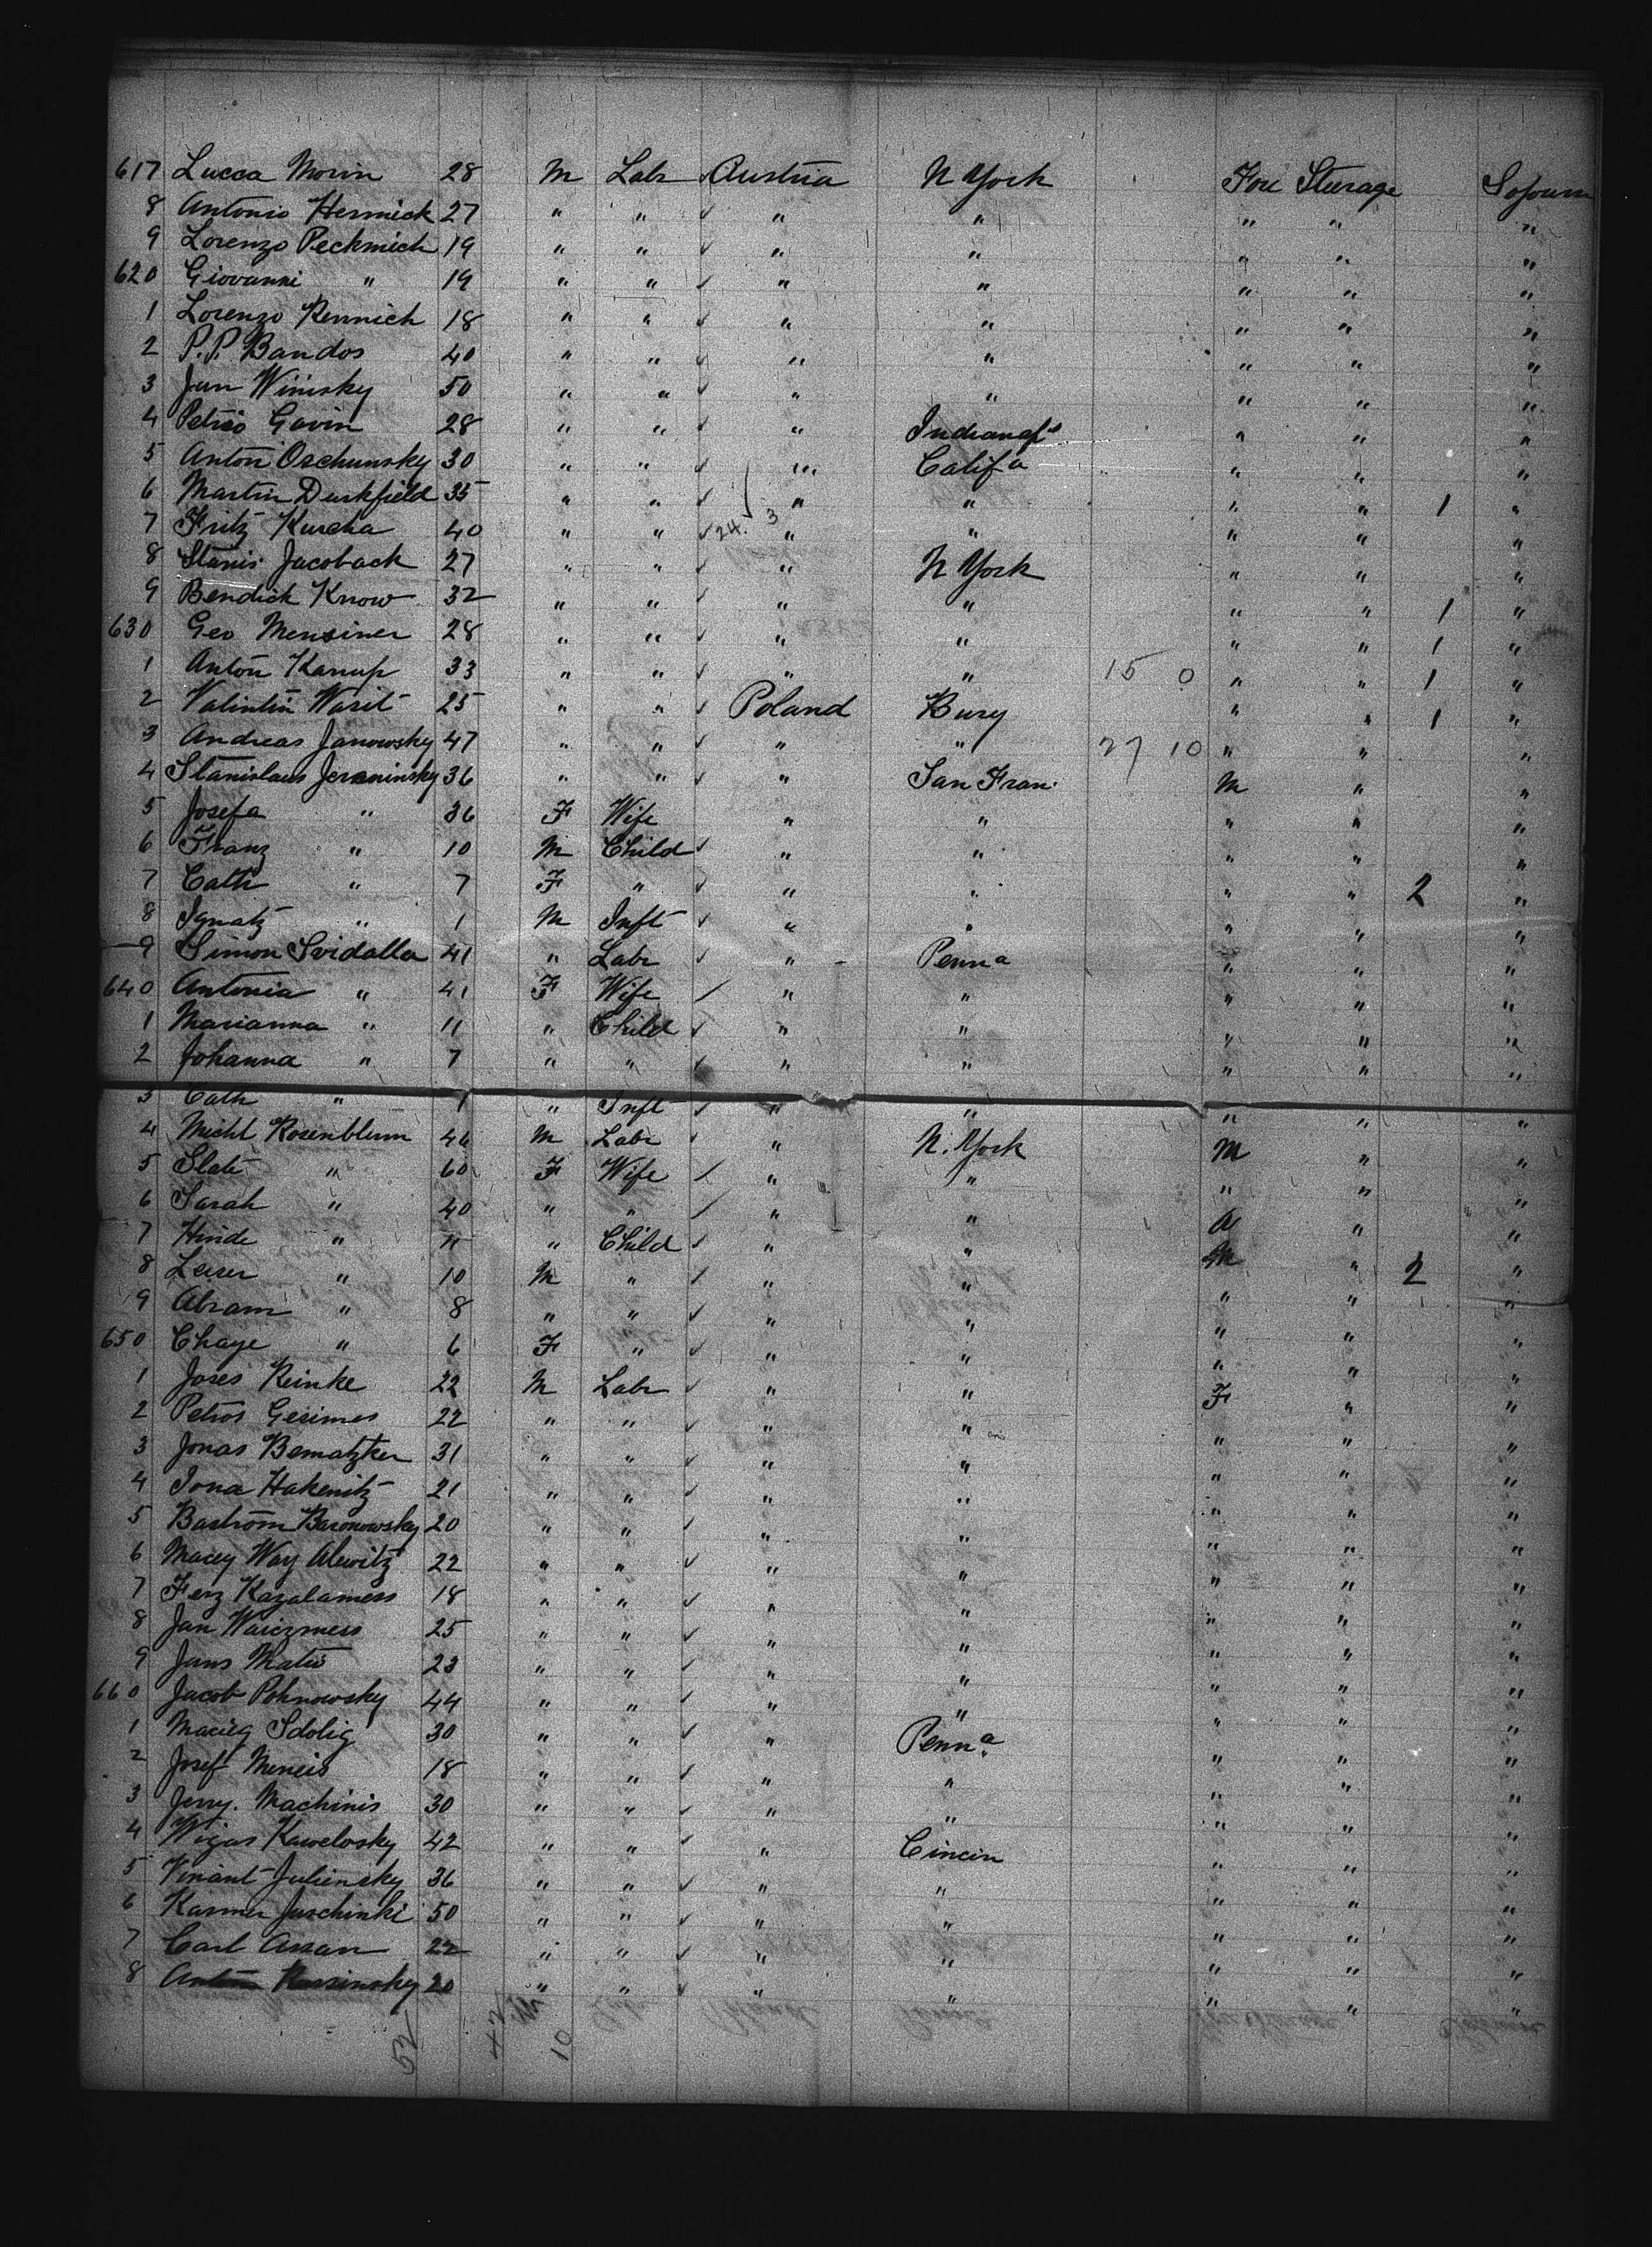 617 Lucca Morin 28 M Labr Austria N York For Steerage Sojourn
8 Antonio Hermick 27 " " " " " " "
9 Lorenzo Peckmich 19 " " " " " " "
620 Giovanni " 19 " " " " " " "
1 Lorenzo Rennich 18 " " " " " " "
2 P.P. Bandos 40 " " " " " " "
3 Jan Winisky 50 " " " " " " "
4 Petrio Gavin 28 " " " Indianaps " " "
5 Anton Oschunsky 30 " " " Califa " " "
6 Martin Duskfield 35 " " " " " " 1 "
7 Fritz Kurcha 40 " " 24. 3 " " " " "
8 Stanis Jacoback 27 " " " N York " " "
9 Bendick Know 32 " " " " " " 1 "
630 Geo Mensiner 28 " " " " " " 1 "
1 Anton Kanup 33 " " " " 15 0 " " 1 "
2 Valintin Warit 25 " " Poland Bury " " 1 "
3 Andreas Janowsky 47 " " " " 27 10 " " "
4 Stanislaus Jeraninsky 36 " " " San Fran. M " "
5 Josefa " 36 F Wife " " " " "
6 Franz " 10 M Child " " " " "
7 Cath " 7 F " " " " " 2 "
8 Ignatz " 1 M Inft " " " " "
9 Simon Svidalla 41 " Labr " Penna " " "
640 Antonia " 41 F Wife " " " " "
1 Marianna " 11 " Child " " " " "
2 Johanna " 7 " " " " " " "
3 Cath " 1 " Inft " " " " "
4 Michl Rosenblum 46 M Labr " N. York M " "
5 Slate " 60 F Wife " " " " "
6 Sarah " 40 " " " " " "
7 Hinde " 11 " Child " " M " "
8 Leiser " 10 M " " " " " 2 "
9 Abram " 8 " " " " " " "
650 Chaye " 6 F " " " " " "
1 Joses Reinke 22 M Labr " " F " "
2 Petros Gesimes 22 " " " " " " "
3 Jonas Bematzker 31 " " " " " " "
4 Iona Hakenitz 21 " " " " " " "
5 Bastrom Baronowsky 20 " " " " " " "
6 Macey Way Alewitz 22 " " " " " " "
7 Ferz Kazalamess 18 " " " " " " "
8 Jan Waiczmess 25 " " " " " " "
9 Jans Matis 23 " " " " " " "
660 Jacob Pohnowsky 44 " " " " " " "
1 Macieg Sdolig 30 " " " Penna " " "
2 Josef Mencis 18 " " " " " " "
3 Jerry. Machinis 30 " " " " " " "
4 Wizas Kawelosky 42 " " " Cincin " " "
5 Vinant Juliensky 36 " " " " " " "
6 Karmer Juschinki 50 " " " " " " "
7 Carl Assan 22 " " " " " " "
8 Anton 20 " " " " " " "
52 42 10